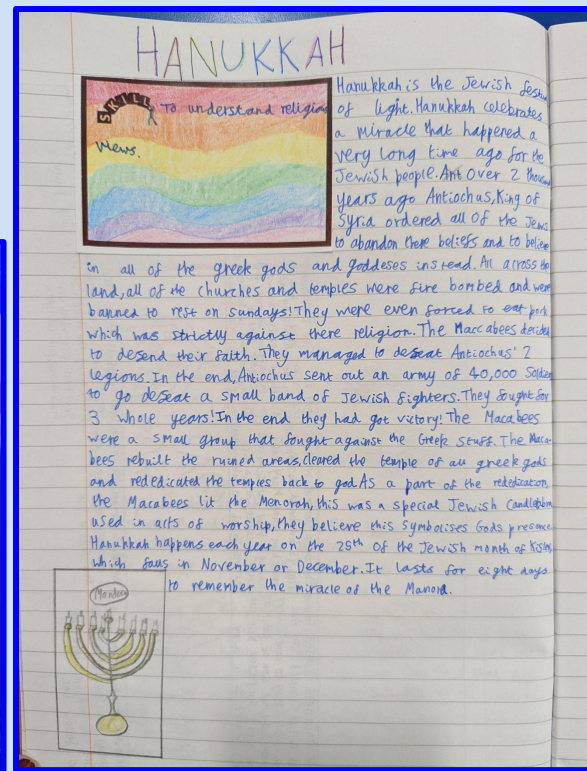 HANUKKAH
SKILL To understand religion
views.
Hanukkah is the Jewish festiv
of light. Hanukkah celebrates
a miracle that happened a
very long time ago for the
Jewish people. Ant Over 2 thousand
years ago Antiochus, King of
Syria ordered all of the Jews
to abandon there beliefs and to believe
in all of the greek gods and goddeses instead. All across the
land, all of the churches and temples were fire bombed and were
banned to rest on sundays! They were even forced to eat pork
which was strictly against there religion. The Maccabees decided
to defend their faith. They managed to defeat Antiochus' 2
legions. In the end, Antiochus sent out an army of 40,000 Soldiers
to go defeat a small band of Jewish fighters. They fought for
3 whole years! In the end they had got victory! The Macabees
were a small group that fought against the Greek stuff. The Maca-
bees rebuilt the ruined areas, cleared the temple of all greek gods
and rededicated the temples back to god. As a part of the rededication
the Macabees lit the Menorah, this was a special Jewish Candelabra
used in acts of worship, they believe this symbolises Gods presence
Hanukkah happens each year on the 25th of the Jewish month of Kislev,
which falls in November or December. It lasts for eight days
to remember the miracle of the Manora.